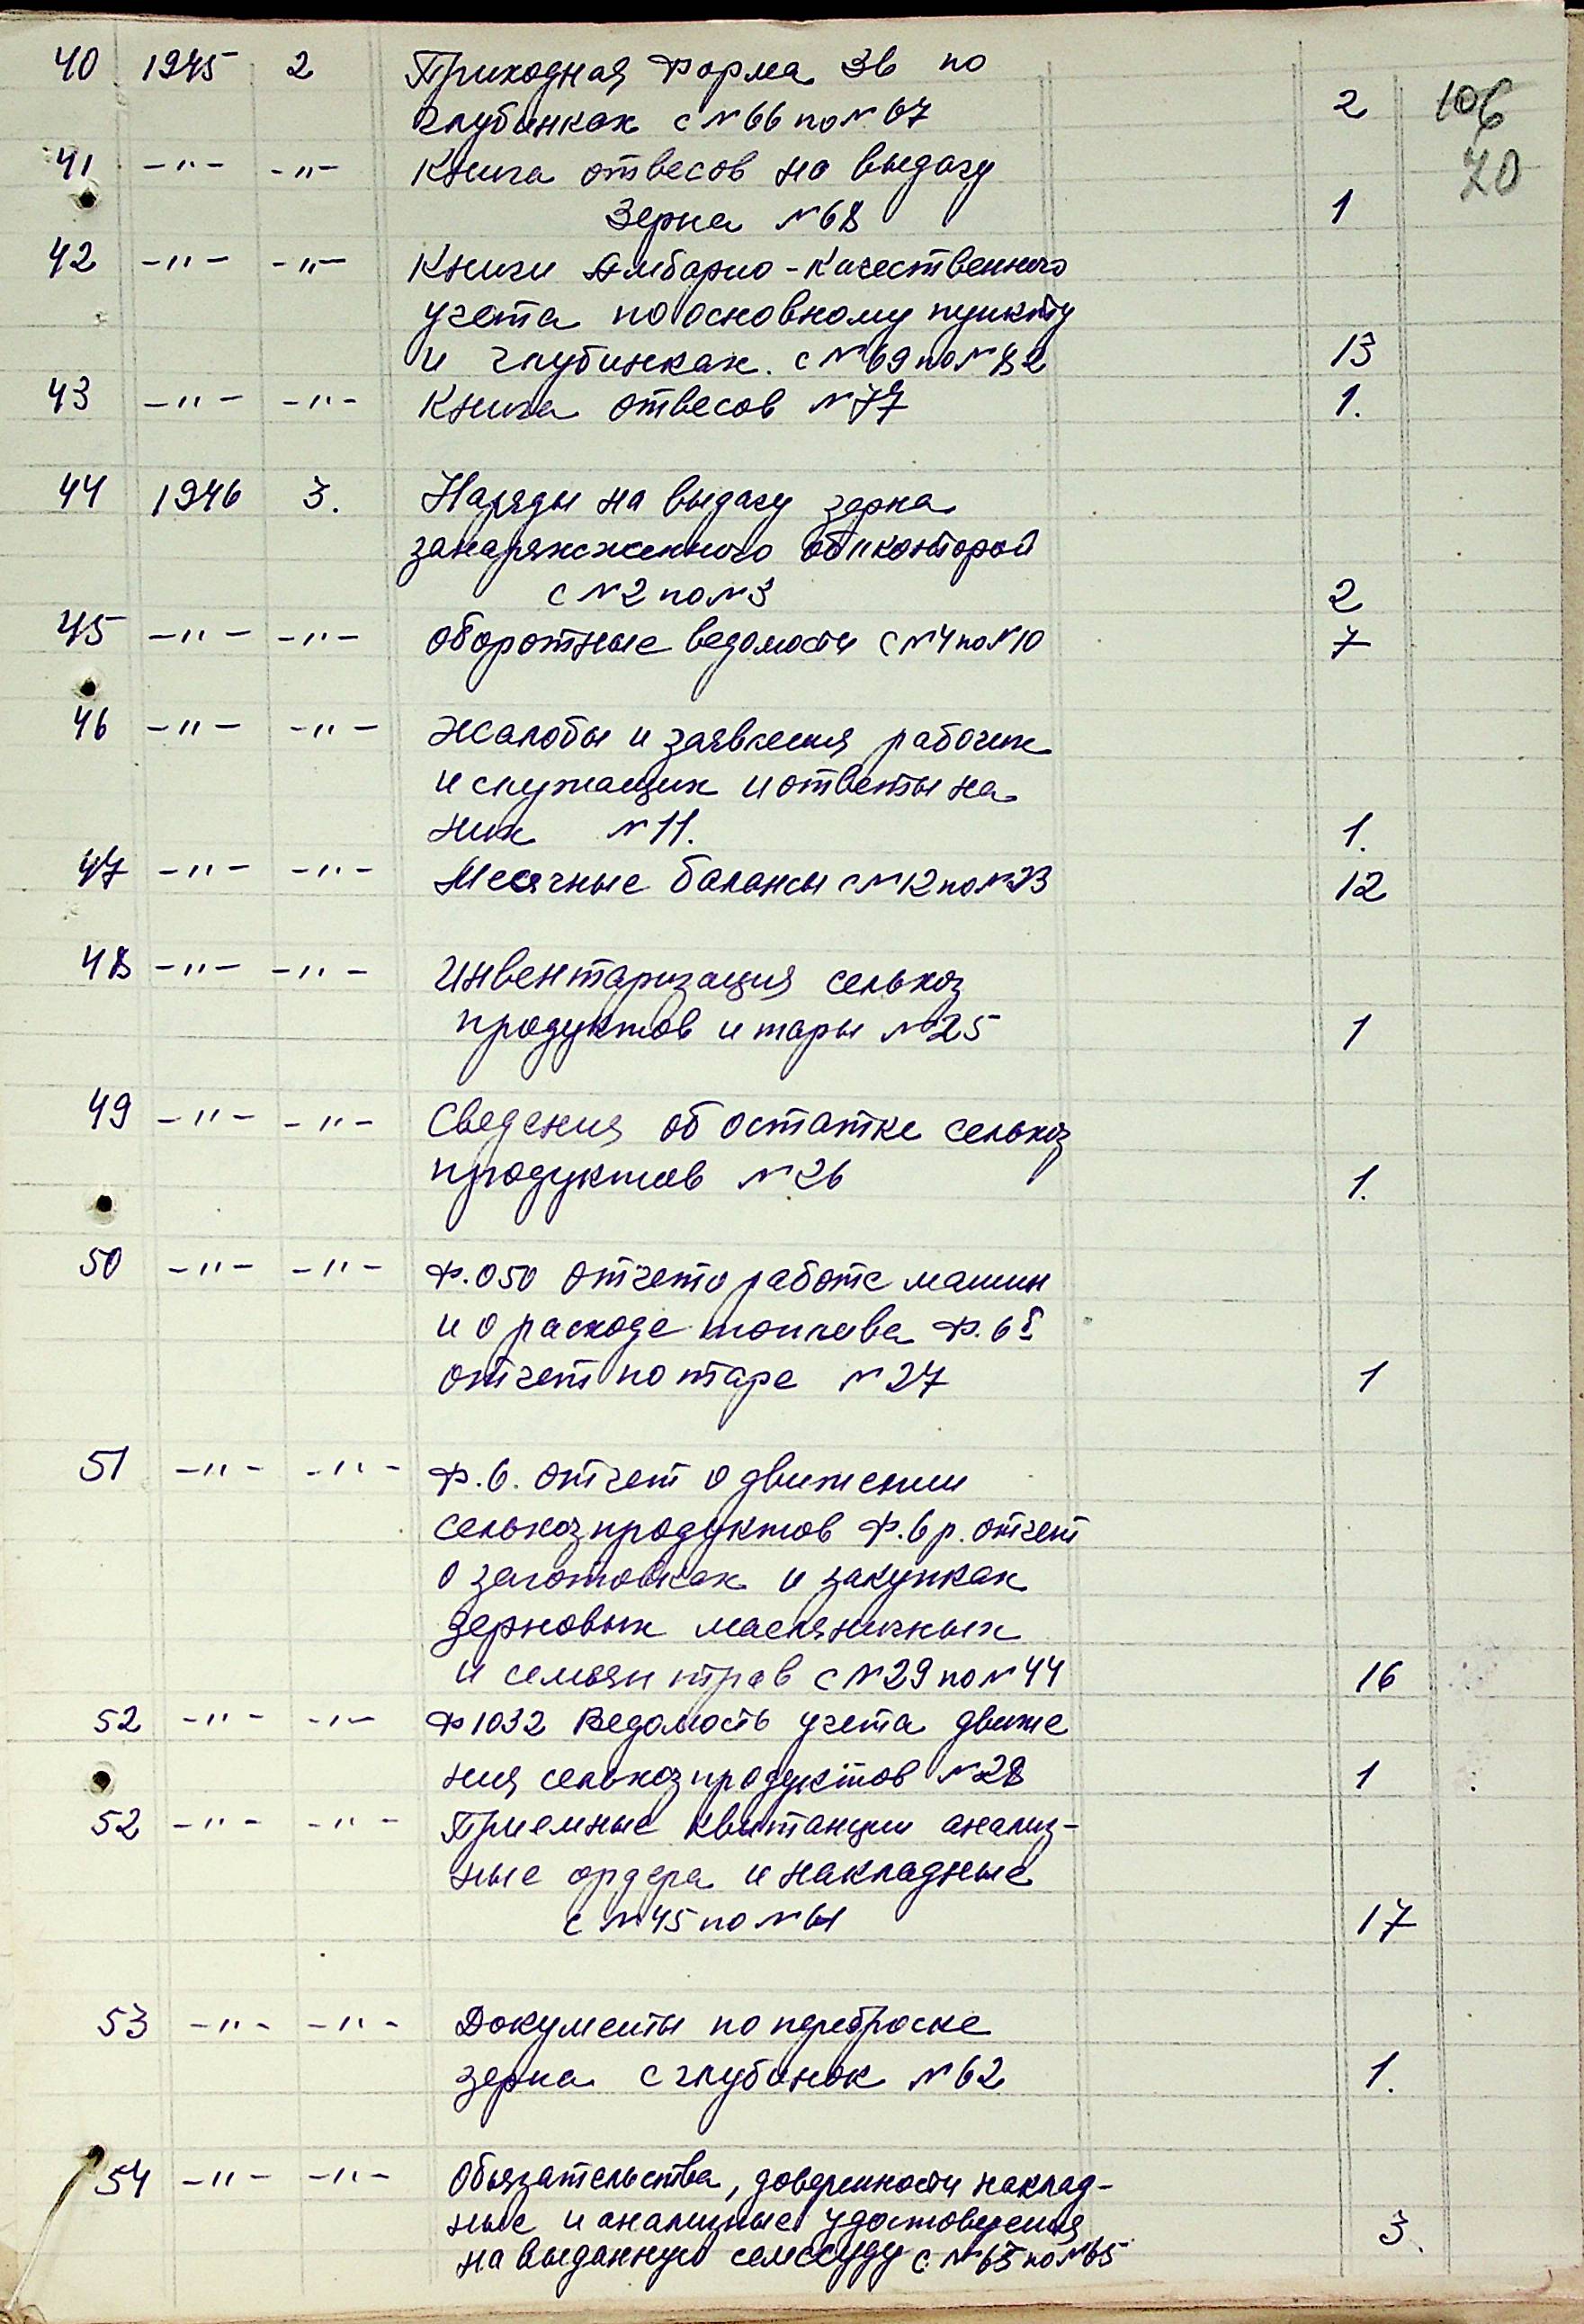 40 1945 2 Приходная форма 3в по
глубинках с №66 по №67 2 106
41 -"- -"- Книга отвесов на выдачу 70
Зерна №68 1
42 -"- -"- Книги Амбарно-качественного
учета по основному пункту
и глубинках. с №69 по №82 13
43 -"- -"- Книга отвесов №77 1.
44 1946 3. Наряды на выдачу зерна
занаряженного облконторой
с №2 по №3 2
45 -"- -"- Оборотные ведомости с №4 по №10 7
46 -"- -"- Жалобы и заявления рабочих
и служащих и ответы на
них №11. 1.
47 -"- -"- Месячные балансы с №12 по №23 12
48 -"- -"- Инвентаризация сельхоз
продуктов и тары №25 1
49 -"- -"- Сведения об остатке сельхоз
продуктов №26 1.
50 -"- -"- Ф.050 отчет о работе машин
и о расходе топлива Ф.6
отчет по таре №27 1
51 -"- -"- Ф.6. отчет о движении
сельхозпродуктов Ф.6р. отчет
о заготовках и закупках
зерновых масляничных
и семян трав с №29 по №44 16
52 -"- -"- Ф1032 Ведомость учета движе
ния сельхозпродуктов №28 1
52 -"- -"- Приемные квитанции анализ-
ные ордера и накладные
с №45 по №61 17
53 -"- -"- Документы по переброске
зерна с глубинок №62 1.
54 -"- -"- Обязательства, доверенности наклад-
ные и анализные удостоверения
на выданную семссуду с №63 по №65 3.